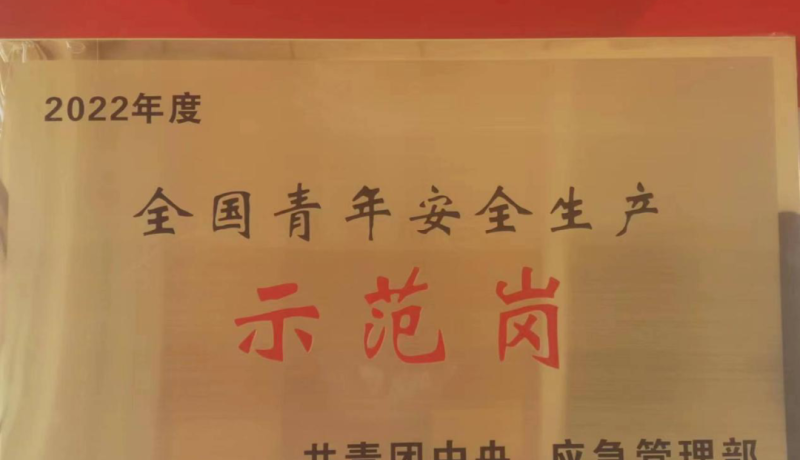 2022年度
全国青年安全生产
示范岗
共青团中央 应急管理部